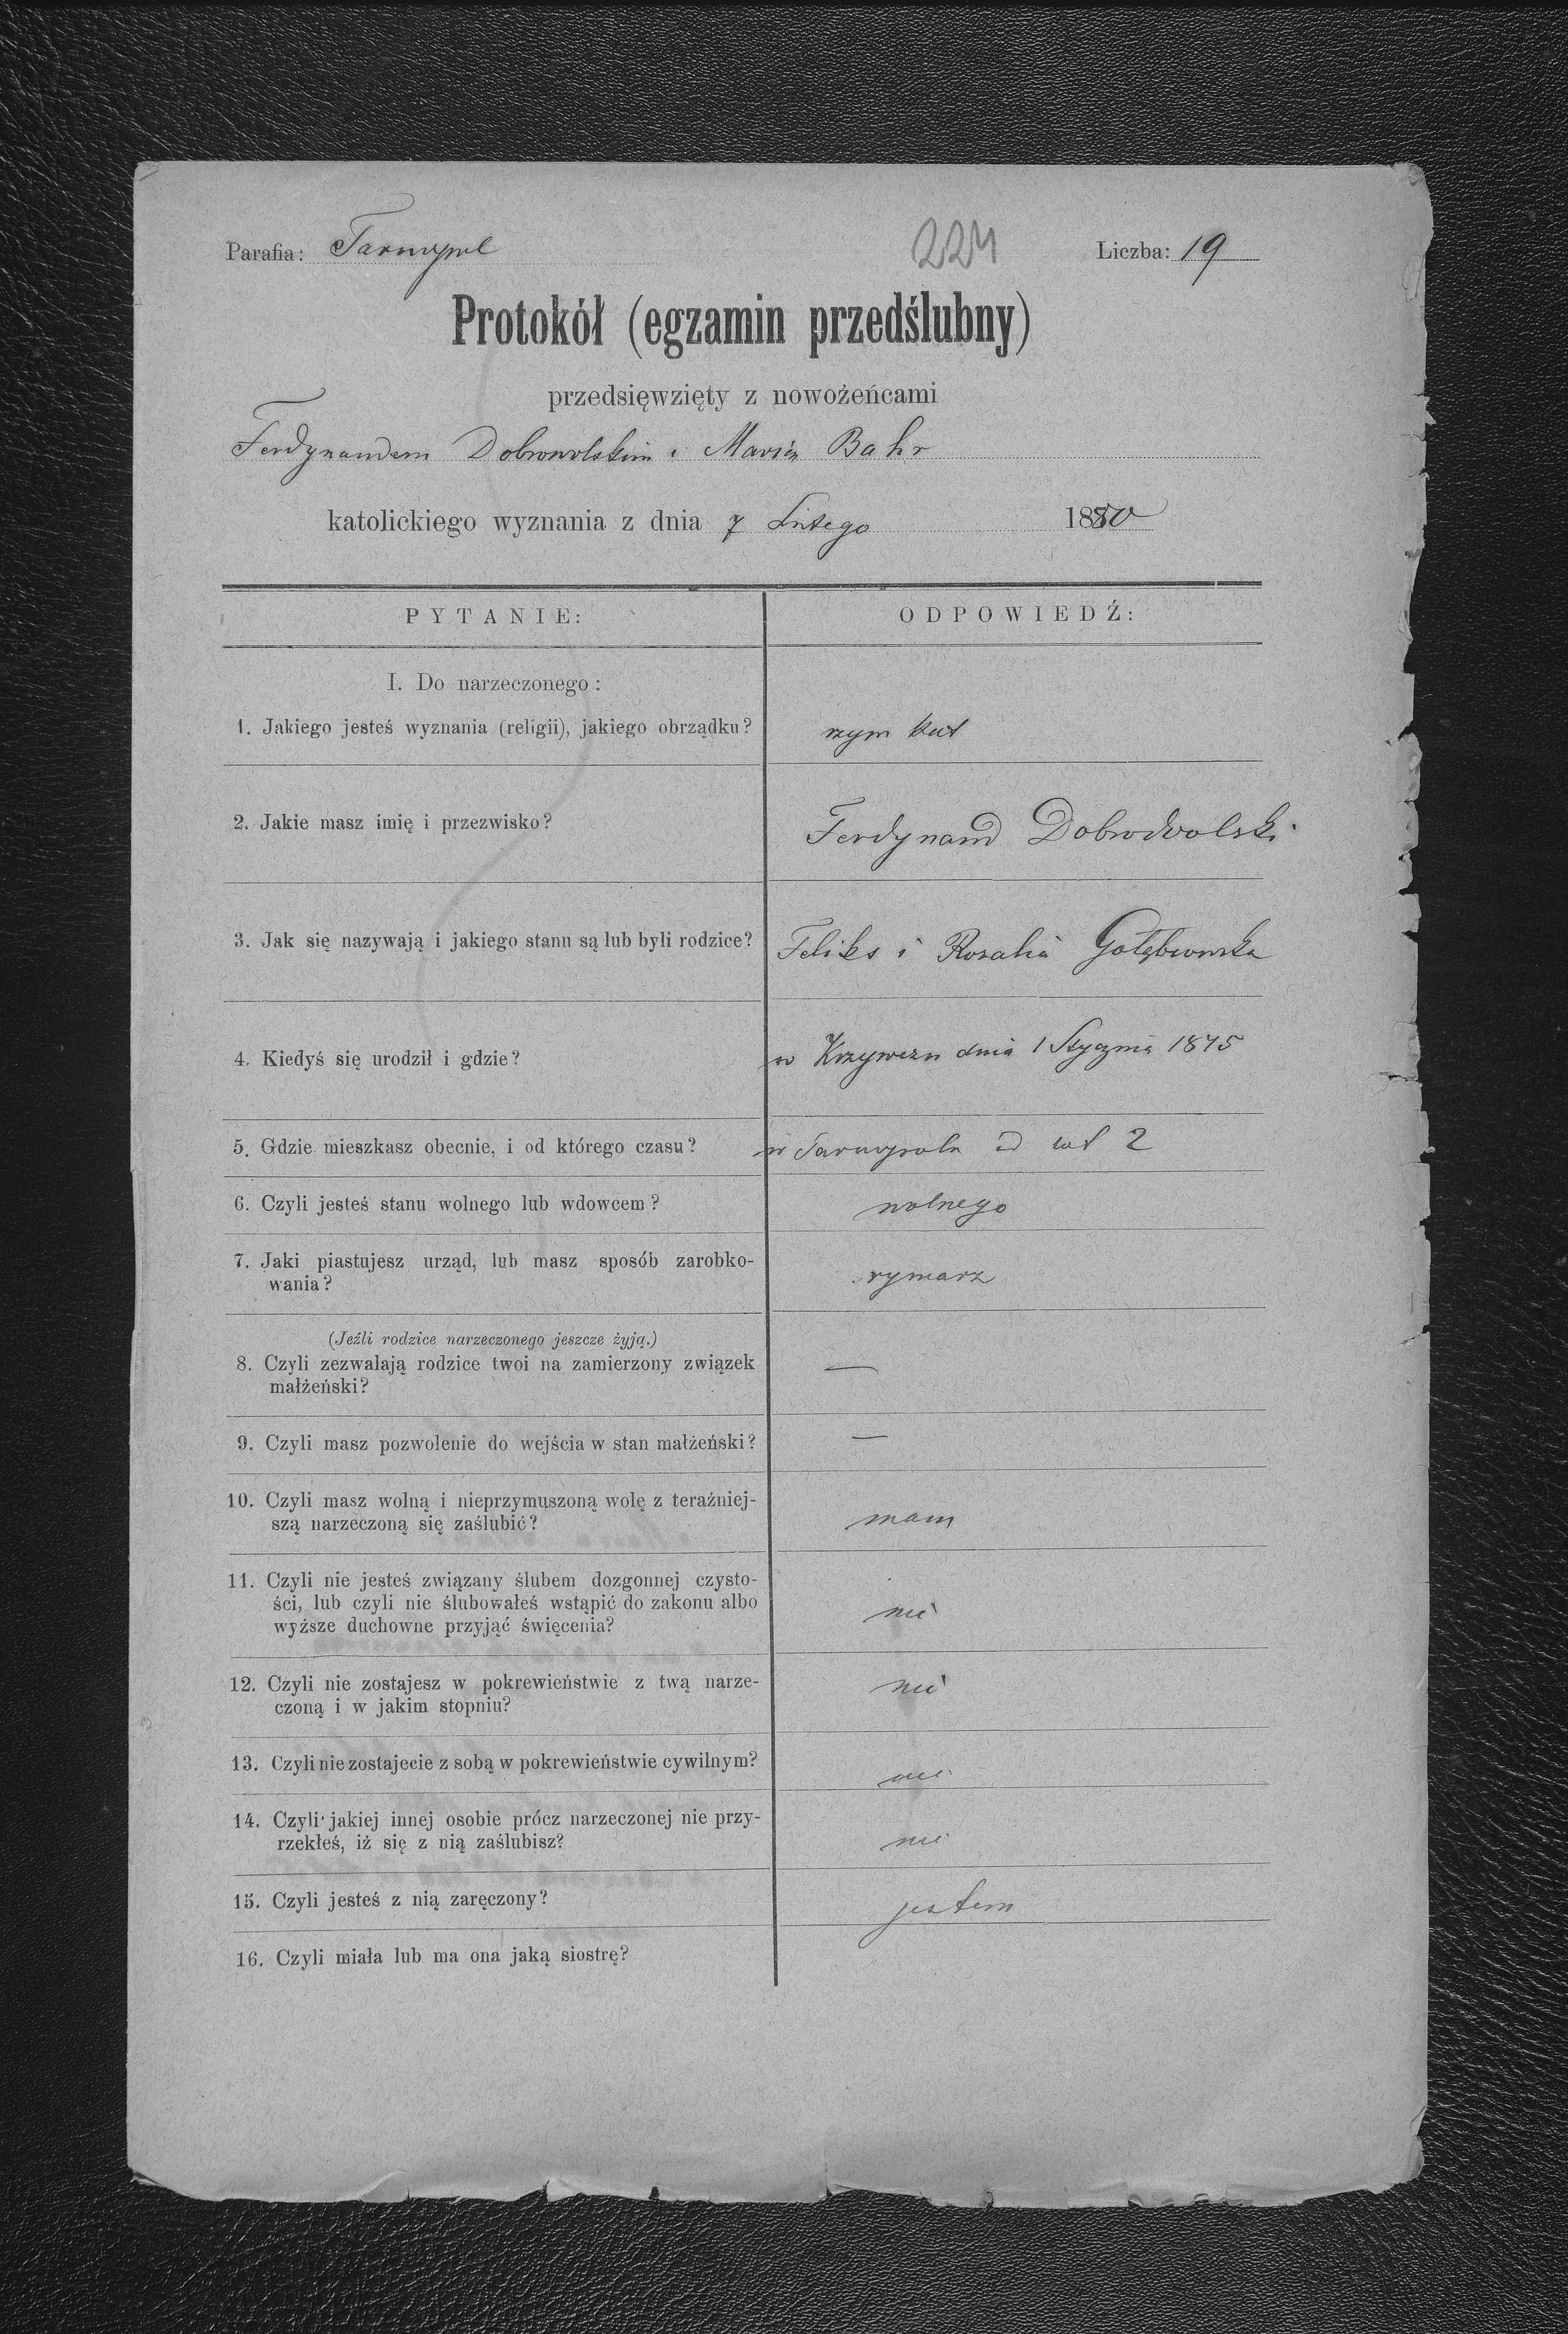 Parafia: Tarnopol 224 Liczba: 19
Protokół (egzamin przedślubny)
przedsięwzięty z nowożeńcami
Ferdynandem Dobrowolskim i Marią Bahr
katolickiego wyznania z dnia 7 Lutego 1880
PYTANIE: ODPOWIEDŹ:
I. Do narzeczonego:
1. Jakiego jesteś wyznania (religii), jakiego obrządku? rzym kat
2. Jakie masz imię i przezwisko? Ferdynand Dobrowolski
3. Jak się nazywają i jakiego stanu są lub byli rodzice? Feliks i Rozalia Gołębiowska
4. Kiedyś się urodził i gdzie? w dnia 1 Stycznia 1845
5. Gdzie mieszkasz obecnie, i od którego czasu? w Tarnopolu od lat 2
6. Czyli jesteś stanu wolnego lub wdowcem? wolnego
7. Jaki piastujesz urząd, lub masz sposób zarobko-
wania? rymarz
(Jeźli rodzice narzeczonego jeszcze żyją.)
8. Czyli zezwalają rodzice twoi na zamierzony związek —
małżeński?
9. Czyli masz pozwolenie do wejścia w stan małżeński? —
10. Czyli masz wolną i nieprzymuszoną wolę z teraźniej-
szą narzeczoną się zaślubić? mam
11. Czyli nie jesteś związany ślubem dozgonnej czysto-
ści, lub czyli nie ślubowałeś wstąpić do zakonu albo nie
wyższe duchowne przyjąć święcenia?
12. Czyli nie zostajesz w pokrewieństwie z twą narze- nie
czoną i w jakim stopniu?
13. Czyli nie zostajecie z sobą w pokrewieństwie cywilnym? nie
14. Czyli jakiej innej osobie prócz narzeczonej nie przy-
rzekłeś, iż się z nią zaślubisz? nie
15. Czyli jesteś z nią zaręczony? jestem
16. Czyli miała lub ma ona jaką siostrę?